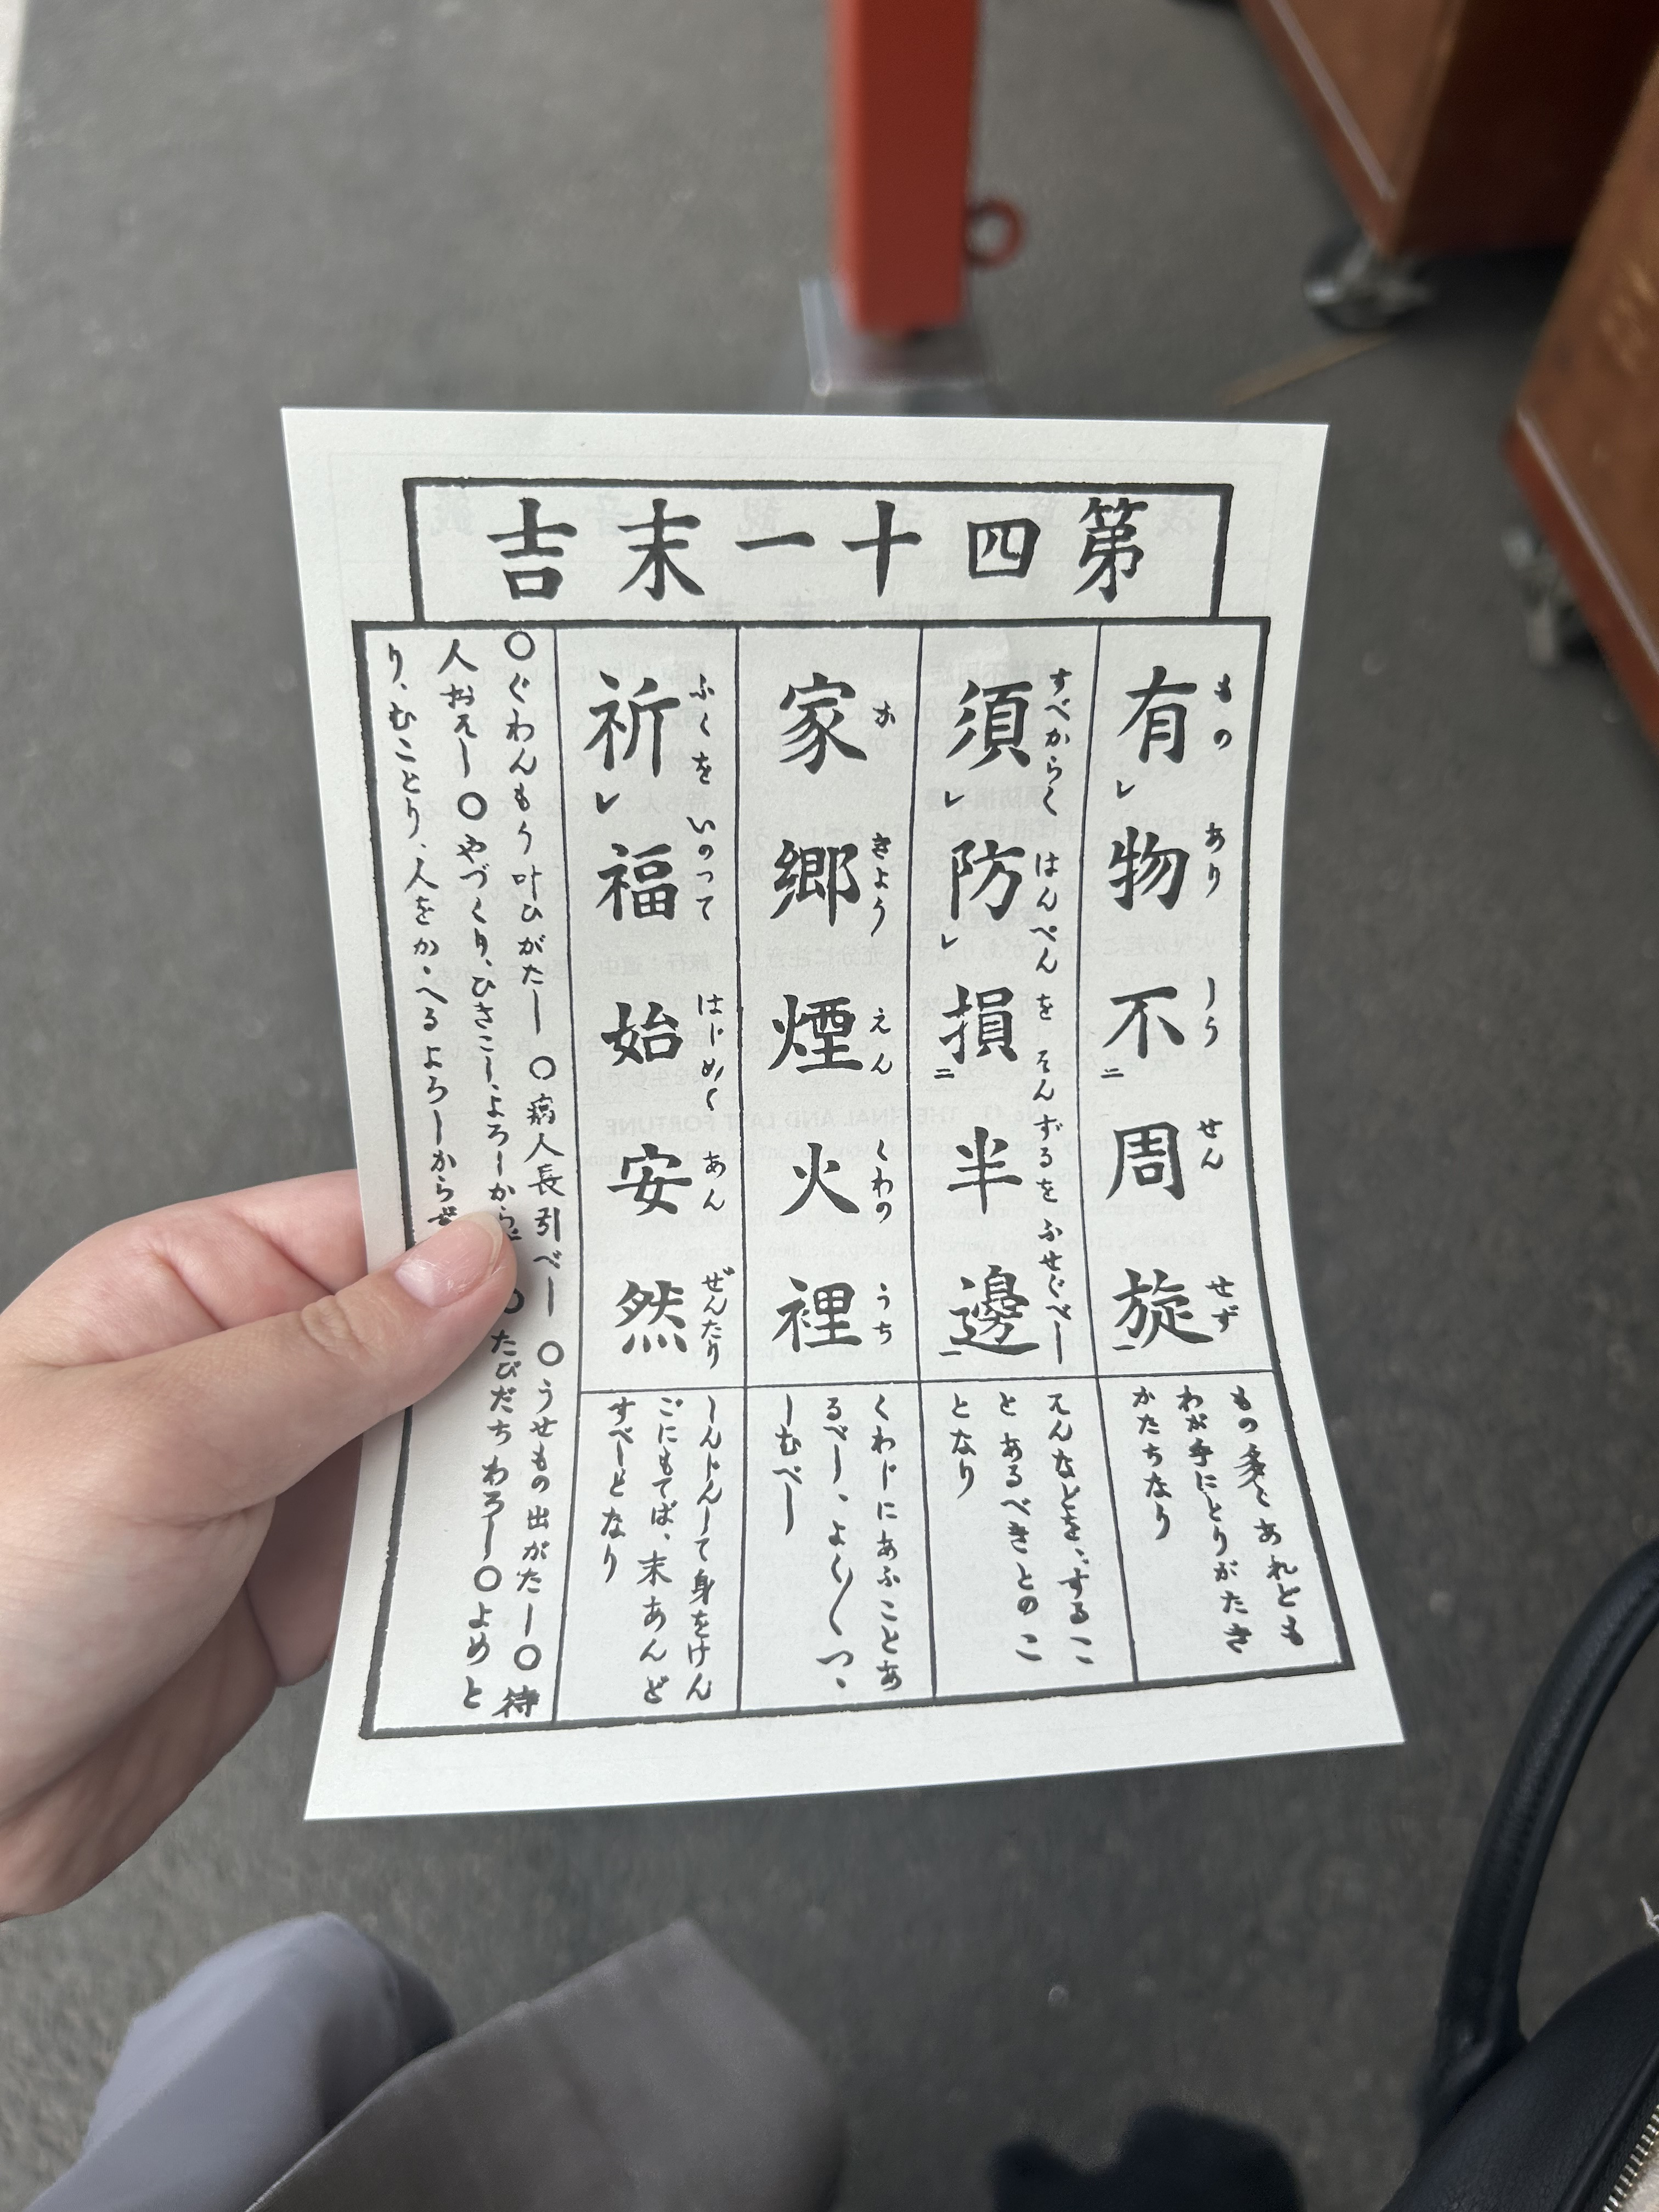 第四十一末吉
有物不周旋
ものありしうせんせず
須防損半邊
すべからくはんぺんをそんずるをふせぐべし
家郷煙火裡
かきようえんくわのうち
祈福始安然
ふくをいのつてはじめてあんぜんたり
もの多くあれども
わが手にとりがたき
かたちなり
えんなどを、するこ
とあるべきとのこ
となり
くわじにあふことあ
るべし、よく〱つゝ
しむべし
しんじんして身をけん
ごにもてば、末あんど
すべしとなり
○ぐわんもう叶ひがたし ○病人長引べし ○うせもの出がたし○待
人おそし○やづくり、ひきこし、よろしから ○たびだちわろし○よめと
り、むことり、人をかゝへるよろしから